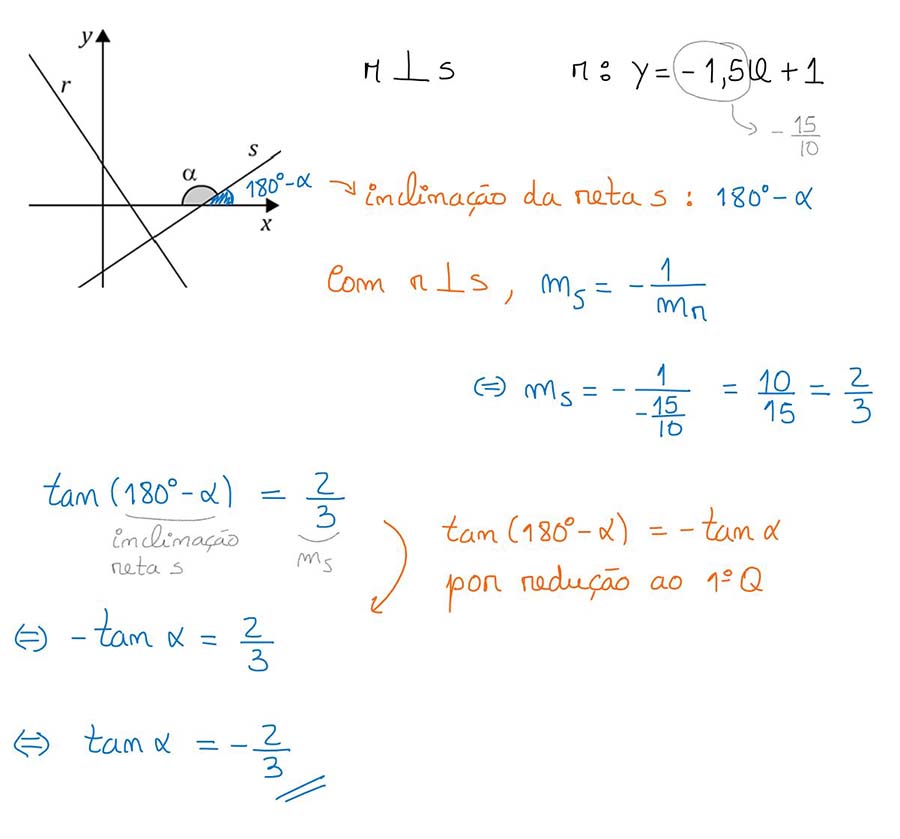 y
r
α
s
180°-α
x
r ⊥ s
r: y = -1,5x + 1
-15/10
inclinação da reta s: 180°-α
Com r ⊥ s, mₛ = -1/mᵣ
⇔ mₛ = -1/(-15/10) = 10/15 = 2/3
tan(180°-α) = 2/3
inclinação
reta s
mₛ
tan(180°-α) = -tan α
por redução ao 1ºQ
⇔ -tan α = 2/3
⇔ tan α = -2/3